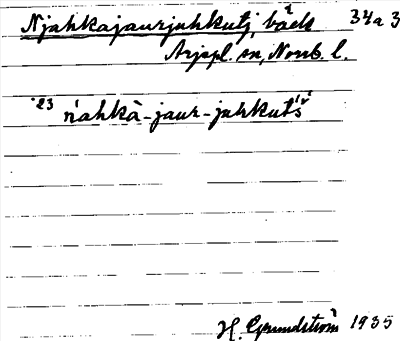 Njahkajaurjuhkutj, bäck 34a3
Arjepl. sn, Norrb. l.
23 ńahkà-jaur-juhkutš́
H. Grundström 1935